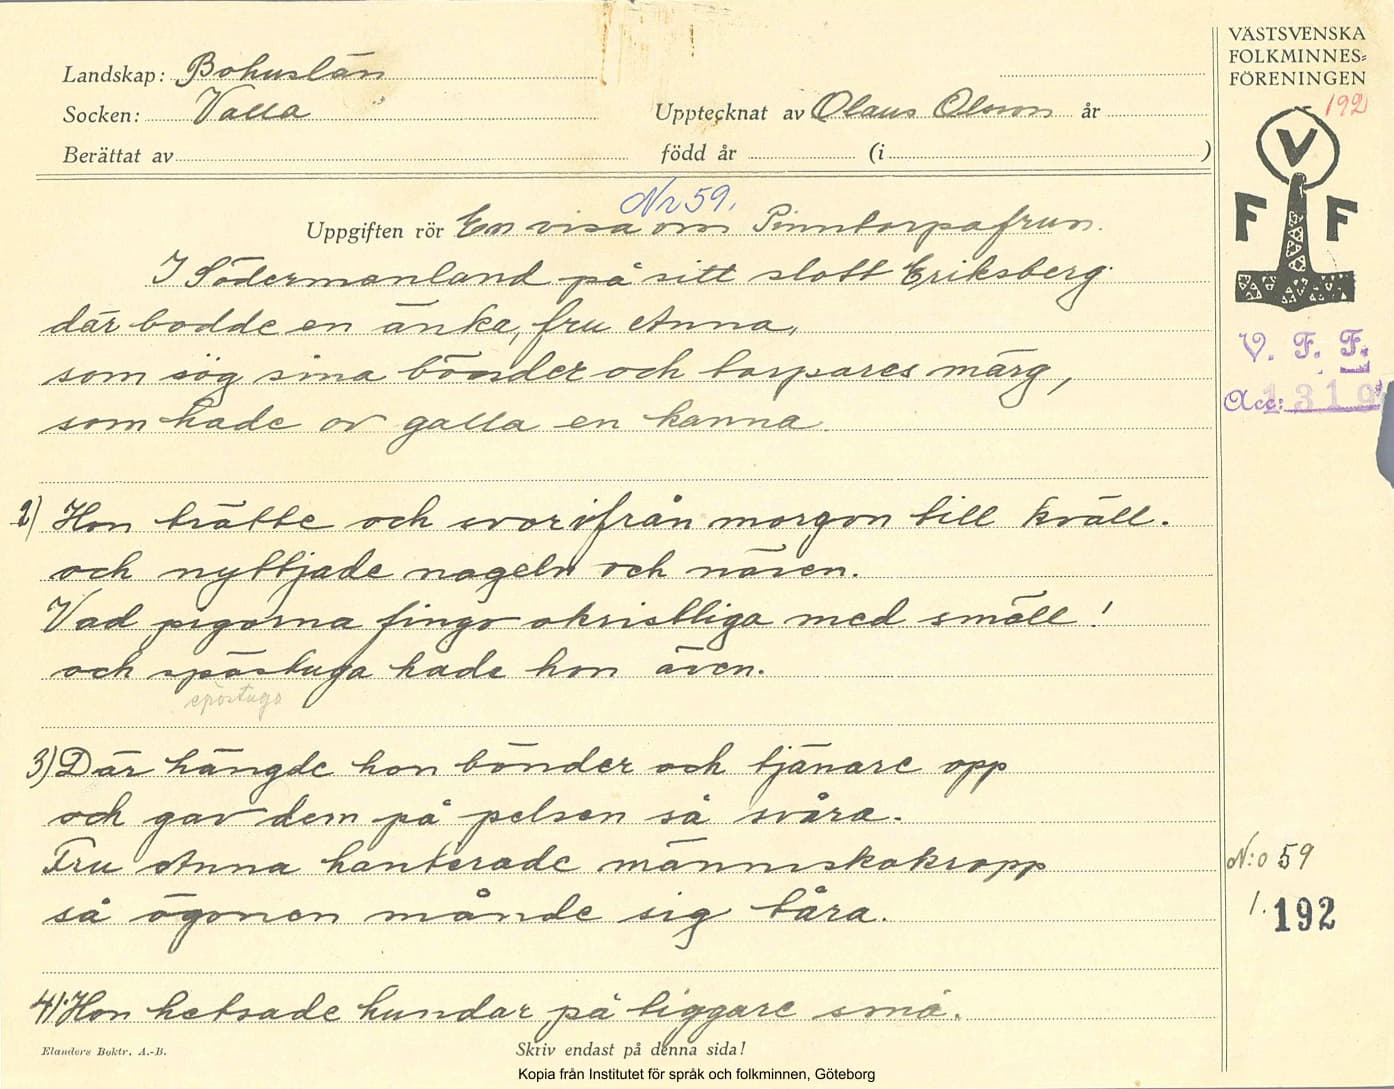 VÄSTSVENSKA
FOLKMINNES=
FÖRENINGEN
192
V
F F
V. F. F.
Acc: 1319
Landskap: Bohuslän
Socken: Valla
Upptecknat av Olaus Olsson år
Berättat av född år (i )
Nr 59.
Uppgiften rör En visa om Pinntorpafrun.
I Södermanland på sitt slott Eriksberg
där bodde en änka, fru Anna,
som sög sina bönder och torpares märg,
som hade av galla en kanna.
2) Hon trätte och svor ifrån morgon till kväll.
och nyttjade nageln och näven.
Vad pigorna fingo okristliga med smäll!
och spöstuga hade hon även.
spöstuga
3) Där hängde hon bönder och tjänare opp
och gav dem på pelsen så svåra.
Fru Anna hanterade människokropp
så ögonen månde sig tåra.
N:o 59
1. 192
4) Hon hetsade hundar på tiggare små.
Elanders Boktr. A.-B.
Skriv endast på denna sida!
Kopia från Institutet för språk och folkminnen, Göteborg